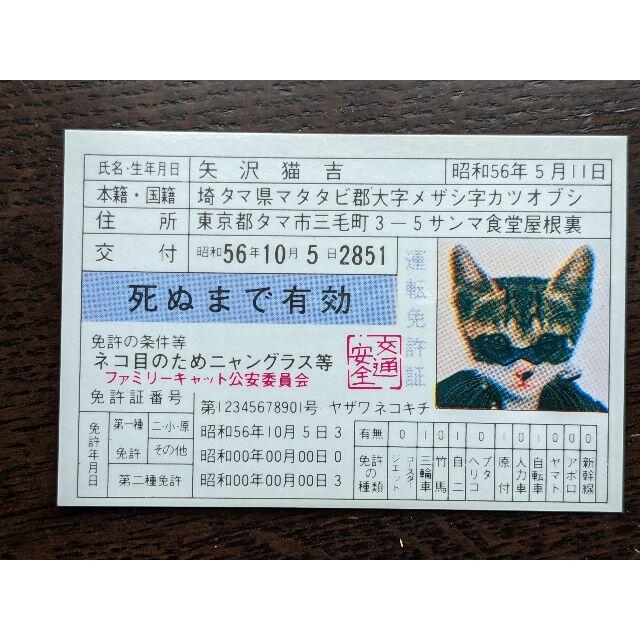 氏名・生年月日 矢沢猫吉 昭和56年5月11日
本籍・国籍 埼タマ県マタタビ郡大字メザシ字カツオブシ
住所 東京都タマ市三毛町3-5サンマ食堂屋根裏
交付 昭和56年10月5日2851
死ぬまで有効
運転免許証
免許の条件等
ネコ目のためニャングラス等
ファミリーキャット公安委員会
交通安全
免許証番号 第12345678901号 ヤザワネコキチ
免許年月日
第一種免許 二・小・原 昭和56年10月5日3
その他 昭和00年00月00日0
第二種免許 昭和00年00月00日3
有無 0 1 0 1 0 1 0 1 0 1 0
免許の種類 ジェットコースター 三輪車 竹馬 自二 ブタヘリコ 原付 人力車 自転車 ヤマト アポロ 新幹線